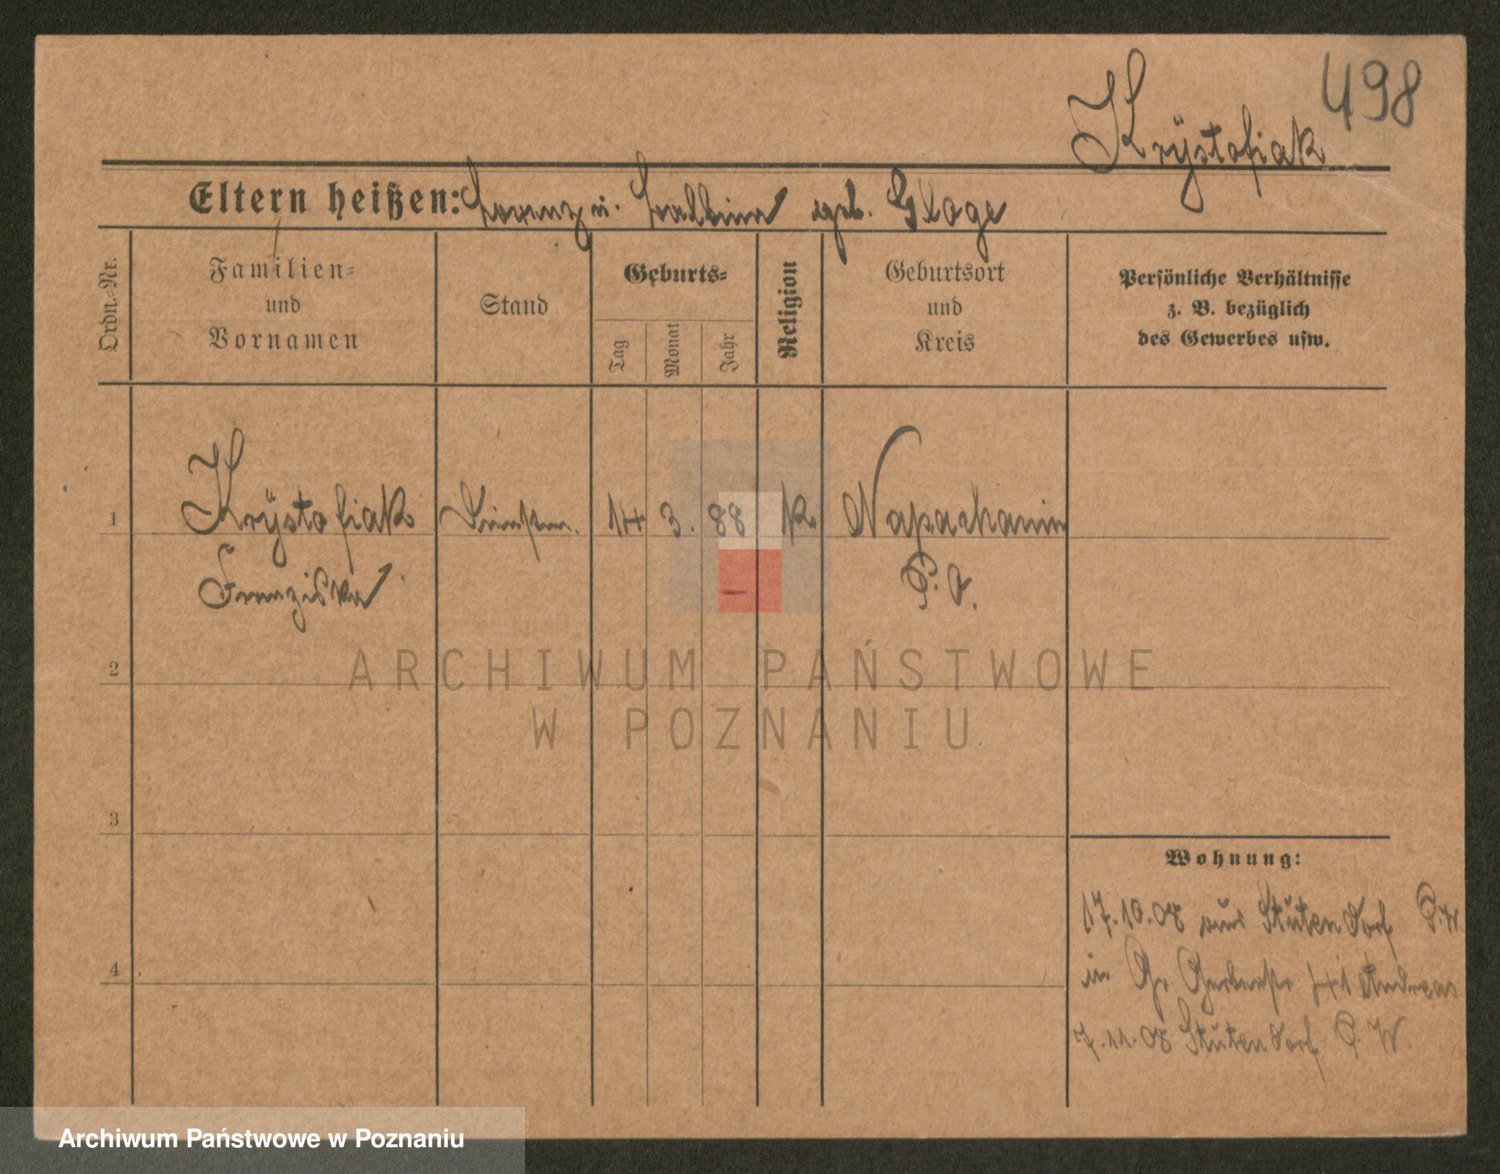 498
Krÿstofiak
Eltern heißen: Lorenz u. Balbina geb. Gloge
Ordn.-Nr.
Familien-
und
Vornamen
Stand
Geburts-
Tag
Monat
Jahr
Religion
Geburtsort
und
Kreis
Persönliche Verhältnisse
z. B. bezüglich
des Gewerbes usw.
1 Krÿstofiak 14 3. 88 k. Napachanin
Franziska P. O.
2
3
4
Wohnung:
17.10.08 aus Stutendorf P.W.
in Gr. Gerberstr 41 Andreas
7.11.08 Stutendorf P. W.
ARCHIWUM PAŃSTWOWE
W POZNANIU
Archiwum Państwowe w Poznaniu